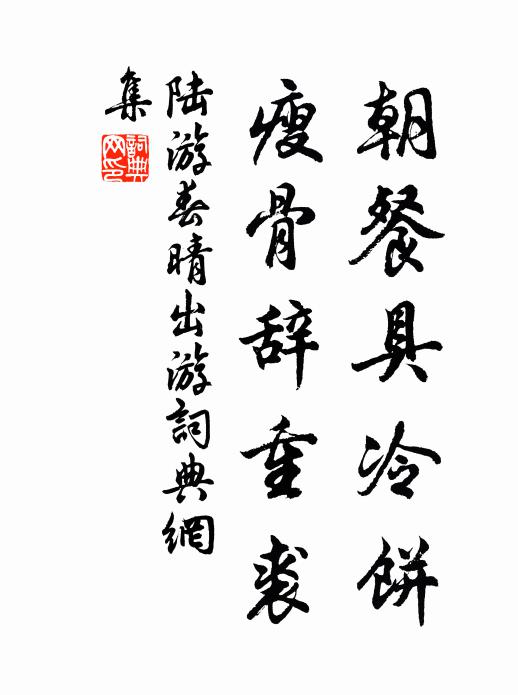 朝餐具冷餅
瘦骨辞重裘
陆游春晴出游詞典網
集
詞典网印